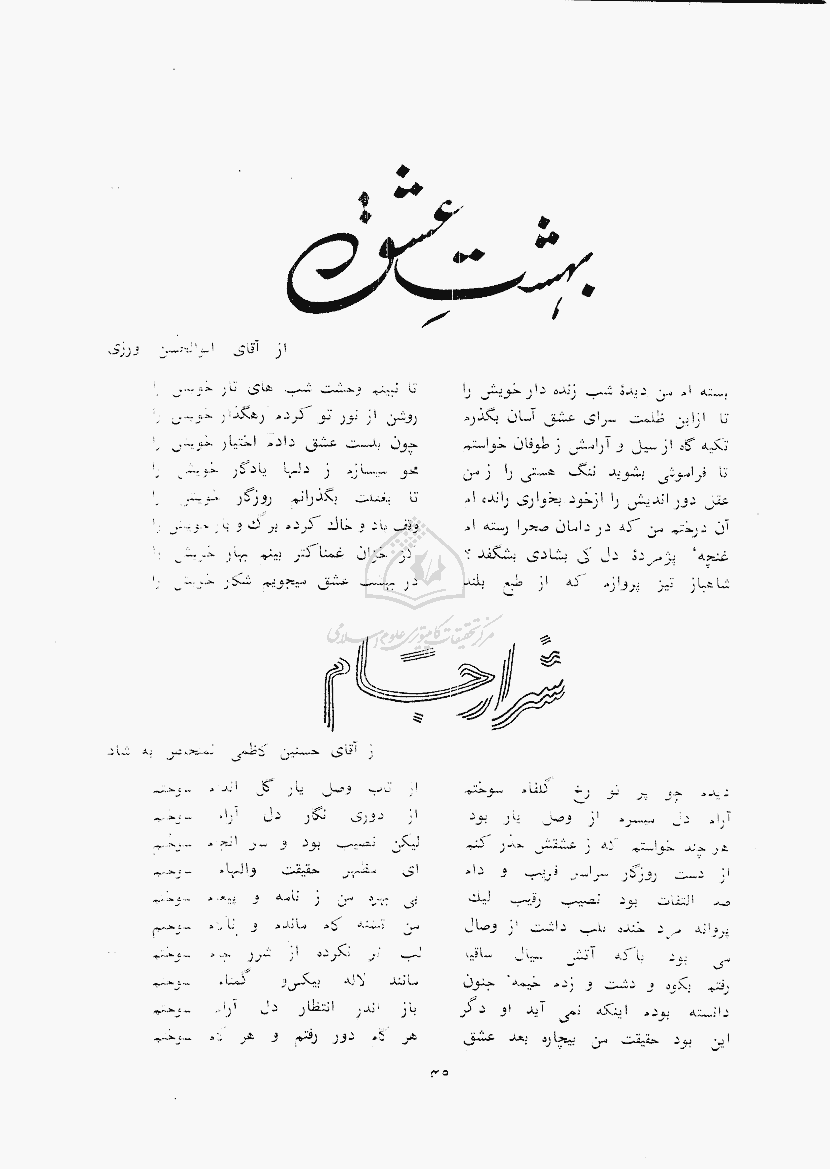 بهشتِ عشق
از آقای ابوالحسن ورزی
بسته ام من دیدۀ شب زنده دار خویش را تا نبینم وحشت شب های تار خویش را
تا ازاین ظلمت سرای عشق آسان بگذرم روشن از نور تو کردم رهگذار خویش را
تکیه گاه از سیل و آرامش ز طوفان خواستم چون بدست عشق دادم اختیار خویش را
تا فراموشی بشوید ننگ هستی را ز من محو میسازم ز دلها یادگار خویش را
عقل دور اندیش را ازخود بخواری رانده ام تا بغفلت بگذرانم روزگار خویش را
آن درختم من که در دامان صحرا رسته ام وقف باد و خاك کرده برگ و بار خویش را
غنچه‌ٔ پژمردۀ دل کی بشادی بشگفد ؟ کز خزان غمناکتر بینم بهار خویش را
شاهباز تیز پروازم که از طبع بلند در بهشت عشق میجویم شکار خویش را
مرکز تحقیقات کامپیوتری علوم اسلامی
شرار جام
از آقای حسنین کاظمی متخلص به شاد
دیدم چو پر تو رخ گلفام سوختم از تاب وصل یار گل اندام سوختم
آرام دل میسرم از وصل یار بود از دوری نگار دل آرام سوختم
هر چند خواستم که ز عشقش حذر کنم لیکن نصیب بود و سر انجام سوختم
از دست روزگار سراسر فریب و دام ای مظهر حقیقت والهام سوختم
صد التفات بود نصیب رقیب لیك بی بهره من ز نامه و پیغام سوختم
پروانه مرد خنده بلب داشت از وصال من تشنه کام مانده و ناکام سوختم
می بود باکه آتش سیال ساقیا لب تر نکرده از شرر جام سوختم
رفتم بکوه و دشت و زدم خیمهٔ جنون مانند لاله بیکس‌و گمنام سوختم
دانسته بودم اینکه نمی آید او دگر باز اندر انتظار دل آرام سوختم
این بود حقیقت من بیچاره بعد عشق هر گام دور رفتم و هر گام سوختم
۳۵